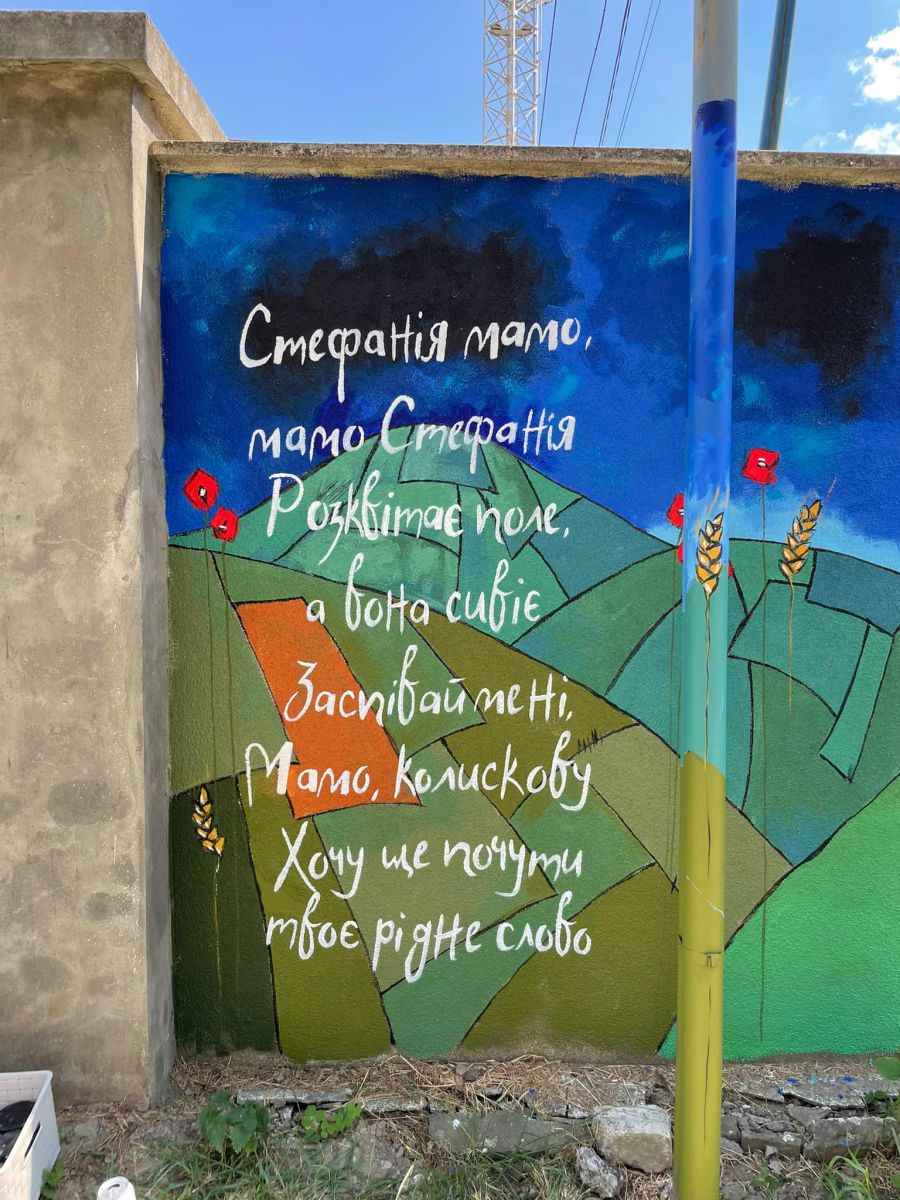 Стефанія мамо,
мамо Стефанія
Розквітає поле,
а вона сивіє
Заспівай мені,
Мамо, колискову
Хочу ще почути
твоє рідне слово